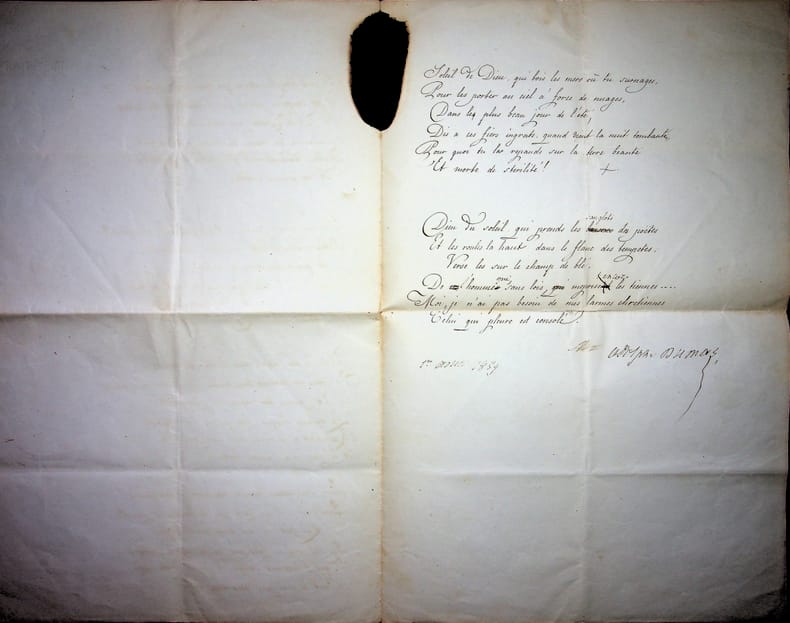 Soleil de Dieu, qui bois les mers où tu surnages,
Pour les porter au ciel à force de nuages,
Dans les plus beau jour de l'été,
Dis à ces fiers ingrats, quand vient la nuit tombante,
Pour quoi tu les répands sur la terre béante
Et morte de stérilité!
+
sanglots
Dieu du soleil qui prends les des poètes
Et les roules la haut dans le flanc des tempetes,
Verse les sur le champ de blé.
qui encor
De l'homme sans lois, les tiennes....
Moi, je n'ai pas besoin de mes larmes chretiennes
Celui qui pleure est consolé.
1839